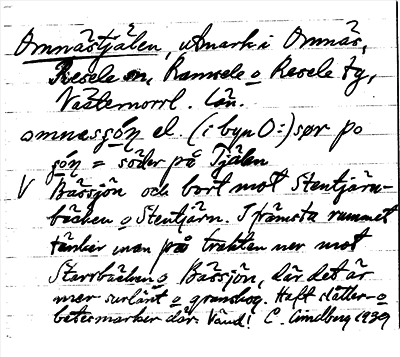 Omnästjälen, utmark i Omnäs,
Resele sn, Ramsele o Resele tg,
Västernorrl. län.
omnæsgóŋ el. (i byn O:) sør po
góŋ = söder på Tjälen
V Bässjön och bort mot Stentjärn-
bäcken o Stentjärn. I främsta rummet
tänker man på trakten ner mot
Starrbäcken o Bässjön, där det är
mer surlänt o granskog. Haft slåtter- o
betesmarker där. Vänd! C. Lindberg 1939